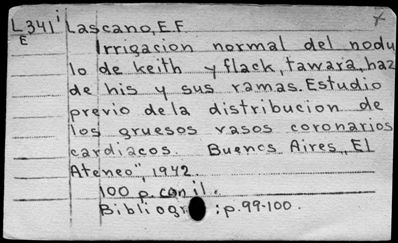 L341' Lascano, E F
E
Irrigacion normal del nodu
lo de keith y flack, tawara, haz
de his y sus ramas. Estudio
previo de la distribucion de
los gruesos vasos coronarios
cardiacos. Buenos Aires, "El
Ateneo", 1942.
100 p. con il.
Bibliogr : p. 99-100.